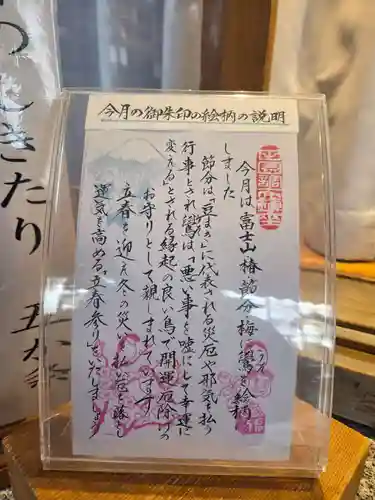 今月の御朱印の絵柄の説明
今月は富士山、椿、節分、梅に鷽を絵柄
しました
節分は「豆まき」に代表される災厄や邪気を払う
行事とされ鷽は「悪い事を嘘にして幸運に
変える」とされる縁起の良い鳥で開運厄除けの
お守りとして親しまれています
立春を迎え冬の災いを払い厄を落とし
運気を高める「立春参り」をいたしましょう
うそ
福
のしきたり